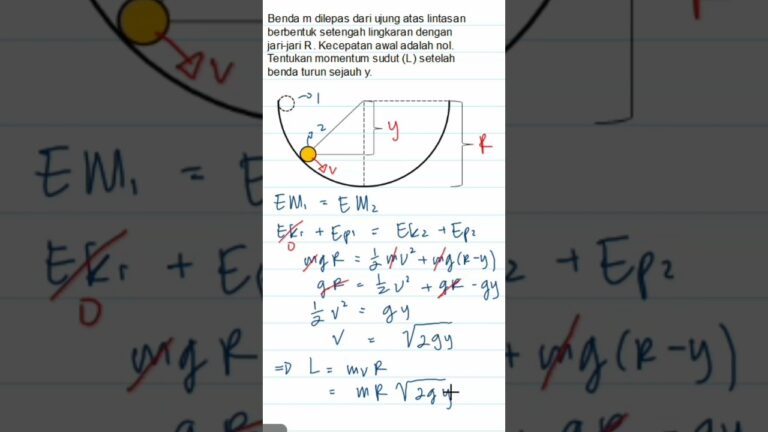 Benda m dilepas dari ujung atas lintasan
berbentuk setengah lingkaran dengan
jari-jari R. Kecepatan awal adalah nol.
Tentukan momentum sudut (L) setelah
benda turun sejauh y.
1
2
y
R
V
V
EM₁ = EM₂
Ek₁ + Ep₁ = Ek₂ + Ep₂
0
mgR = 1/2 mv² + mg(R-y)
gR = 1/2 v² + gR - gy
1/2 v² = gy
V = √2gy
=> L = mvR
= mR √2gy
EM₁ =
Ek₁ +
0
mgR
2 + Ep₂
mg(R-y)